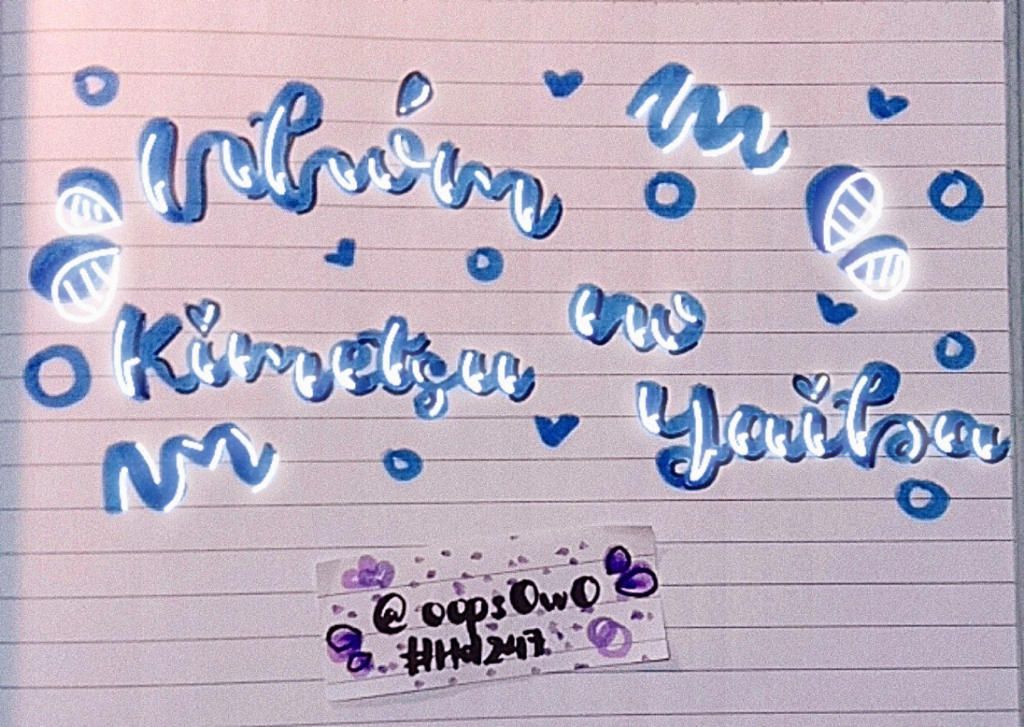 Nhóm
Kimetsu no
Yaiba
@oopsOwO
#Hd247